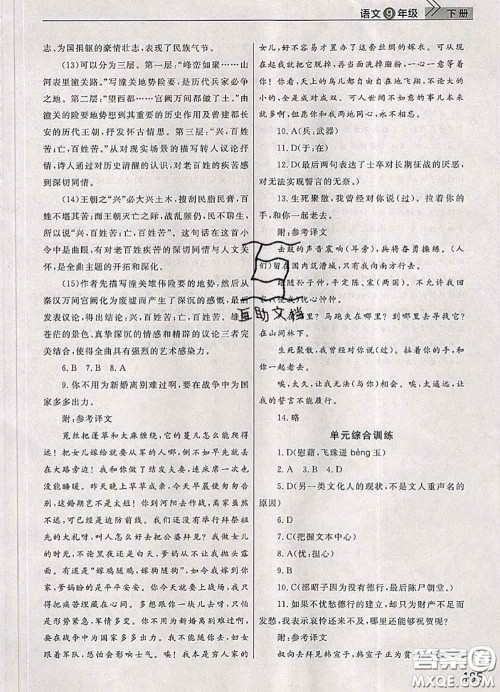 语文9年级 下册
志、为国捐躯的豪情壮志，表现了民族气节。
(13)可以分为三层。第一层：“峰峦……山
河表里潼关路。”写潼关地势险要，是历代兵家必争
之地。第二层：“望西都……宫阙万间都做了土。”由
潼关的险要地势想到其重要的历史作用及曾建都长
安的历代王朝，抒发怀古情感。第三层：“兴，百姓
苦；亡，百姓苦。”从对现实场景的描写转入议论抒
情，诗人通过对历史清醒的认识，对老百姓的疾苦感
到深切同情。
(14)王朝之“兴”必大兴土木，搜刮民脂民膏，百
姓不堪其苦；而王朝灭亡之际，战乱频仍，民不聊生，
所以说“兴，百姓苦；亡，百姓苦”。这句话在这首小
令中是曲眼，有对老百姓的深切同情与人文关
怀，是全曲主题的开拓和深化。
(15)作者先描写潼关雄伟险要的形势，然后从
秦汉万间宫阙化为废墟而产生了深沉的感慨，最后
发表议论，得出结论，使得结论真实可信。雄浑
苍茫的景色、真挚深沉的情感和精辟的议论三者完
美结合，使得全曲具有强烈的艺术感染力。
6.B 7.B 8.A
9.你不用为新婚离别难过啊，要在战争中为国
家多多出力。
附：参考译文
菟丝把蓬草和大麻缠绕，它的蔓儿怎么能爬得
远！把女儿嫁给就要从军的人哪，倒不如早先就丢在
大路旁边！我和你做了结发夫妻，连床席一次也没能
睡暖；昨天晚上草草成亲，今天早晨便匆匆告别，
这婚期岂不是太短！你到河阳去作战，离家虽
然不远，可已经是边防前线；我们还没有举行拜祭祖先
的大礼呀，叫人怎么好去把公婆拜见？我做女儿
的时光，不论黑夜还是白天，爹妈从不让我抛头露面；
有道是“嫁鸡随鸡，嫁狗随狗”，如今我嫁到你家，
爹妈盼的是平平安安。你今天就要上战场，
我只得把痛苦埋藏在心间；多想跟你一块儿去呀，
只怕是形势紧急，军情多变。你不用为新婚离别难过
啊，要在战争中为国家多多出力；我不能随你去，妇
女跟着军队，恐怕会影响士气。唉！我本是穷人家的
女儿，好不容易才制办了这套丝绸的嫁衣；可从现
在起我就把它脱掉，再当面洗掉脂粉，一心一意等着
你！你看，天上的鸟儿都自由自在地飞翔，不论大的
小的，全是成对成双；可人世间不如意的事儿本来
就多啊，但愿你和我两地同心，永不相忘！
10.A(兵：武器)
11.D(最后两句表达了士卒对长期征战的厌恶，
对无法实现誓言的无奈。)
13.生死聚散，我曾经对你说(过)。拉着你的
手，和你一起老去。
附：参考译文
击鼓的声音震响(耳旁)，兵将奋勇操练。(人
们)留在国内筑漕城，只有我向南方行去。
跟随孙子仲，平定陈、宋(两国)。不允许我回
家，(使我)忧心忡忡。
于是人在哪里？于是马跑失在了哪里？到哪里去寻找它？在
山间林下。
生死聚散，我曾经对你说(过)。拉着你的手，
和你一起老去。
唉，太久，让我无法(与你)相会。唉，太遥远，让我
的誓言不能履行。
14.略
单元综合训练
1.D(慰藉，飞珠迸bèng玉)
2.A 3.B 4.D
5.D(另一类文化人的现状，不是文人重声名的
原因)
6.D
7.C(把握文本中心)
8.A
9.A(以：因为)
10.D(郤昭子因为没有德行，最后陈尸朝堂。)
11.如果不忧愁德行的建立，却只为财产不足而
发愁，表示哀吊还来不及，哪里还能够祝贺呢？
附：参考译文
叔向去拜见韩宣子，韩宣子正为贫困而发愁，
互助文档
答案圈
MXQE.COM